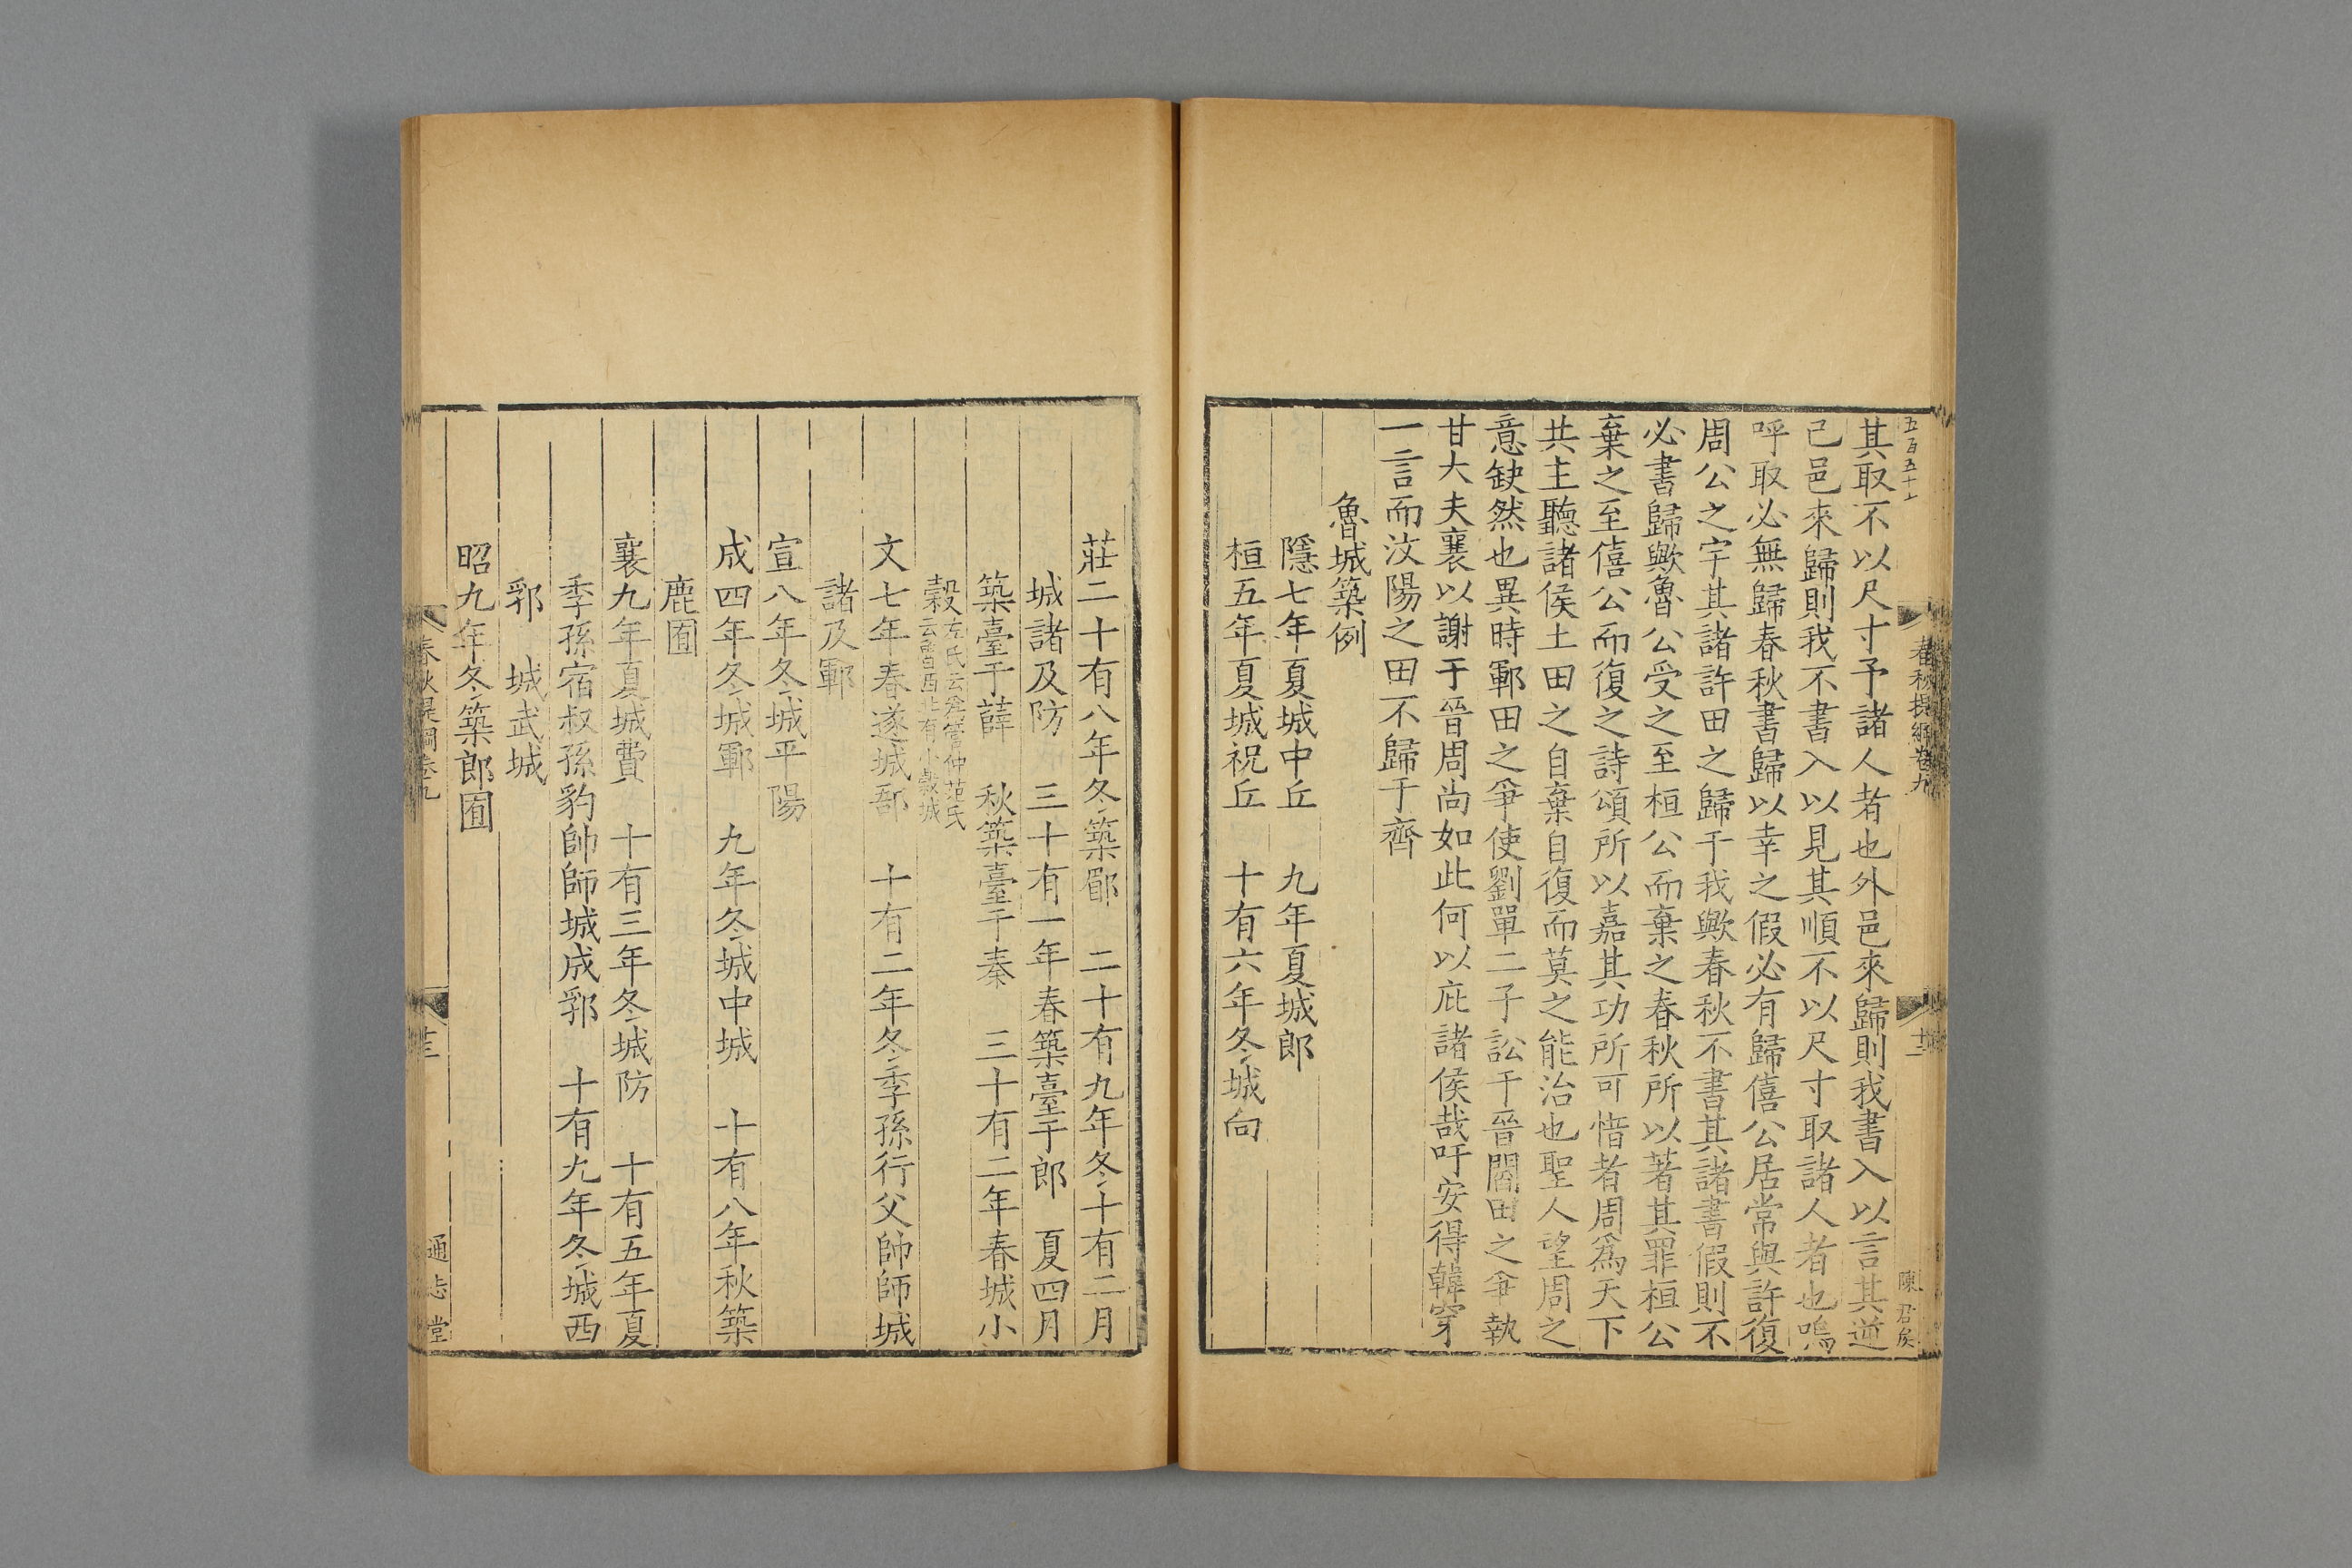 五百五十
春秋提綱卷九
十二
陳君矦
其取不以尺寸予諸人者也外邑來歸則我書入以言其逆
己邑來歸則我不書入以見其順不以尺寸取諸人者也嗚
呼取必無歸春秋書歸以幸之假必有歸僖公居常與許復
周公之宇其諸許田之歸于我歟春秋不書其諸書假則不
必書歸歟魯公受之至桓公而棄之春秋所以著其罪桓公
棄之至僖公而復之詩頌所以嘉其功所可惜者周爲天下
共主聽諸侯土田之自棄自復而莫之能治也聖人望周之
意缺然也異時鄆田之爭使劉單二子訟于晉閻田之爭執
甘大夫襄以謝于晉周尚如此何以庇諸侯哉吁安得韓穿
一言而汶陽之田不歸于齊
魯城築例
隱七年夏城中丘　九年夏城郎
桓五年夏城祝丘　十有六年冬城向
莊二十有八年冬築郿　二十有九年冬十有二月
城諸及防　三十有一年春築臺于郎　夏四月
築臺于薛　秋築臺于秦　三十有二年春城小
穀左氏云爲管仲范氏
云魯西北有小穀城
文七年春遂城郚　十有二年冬季孫行父帥師城
諸及鄆
宣八年冬城平陽
成四年冬城鄆　九年冬城中城　十有八年秋築
鹿囿
襄九年夏城費　十有三年冬城防　十有五年夏
季孫宿叔孫豹帥師城成郛　十有九年冬城西
郛　城武城
昭九年冬築郎囿
春秋提綱卷九
十三
通志堂